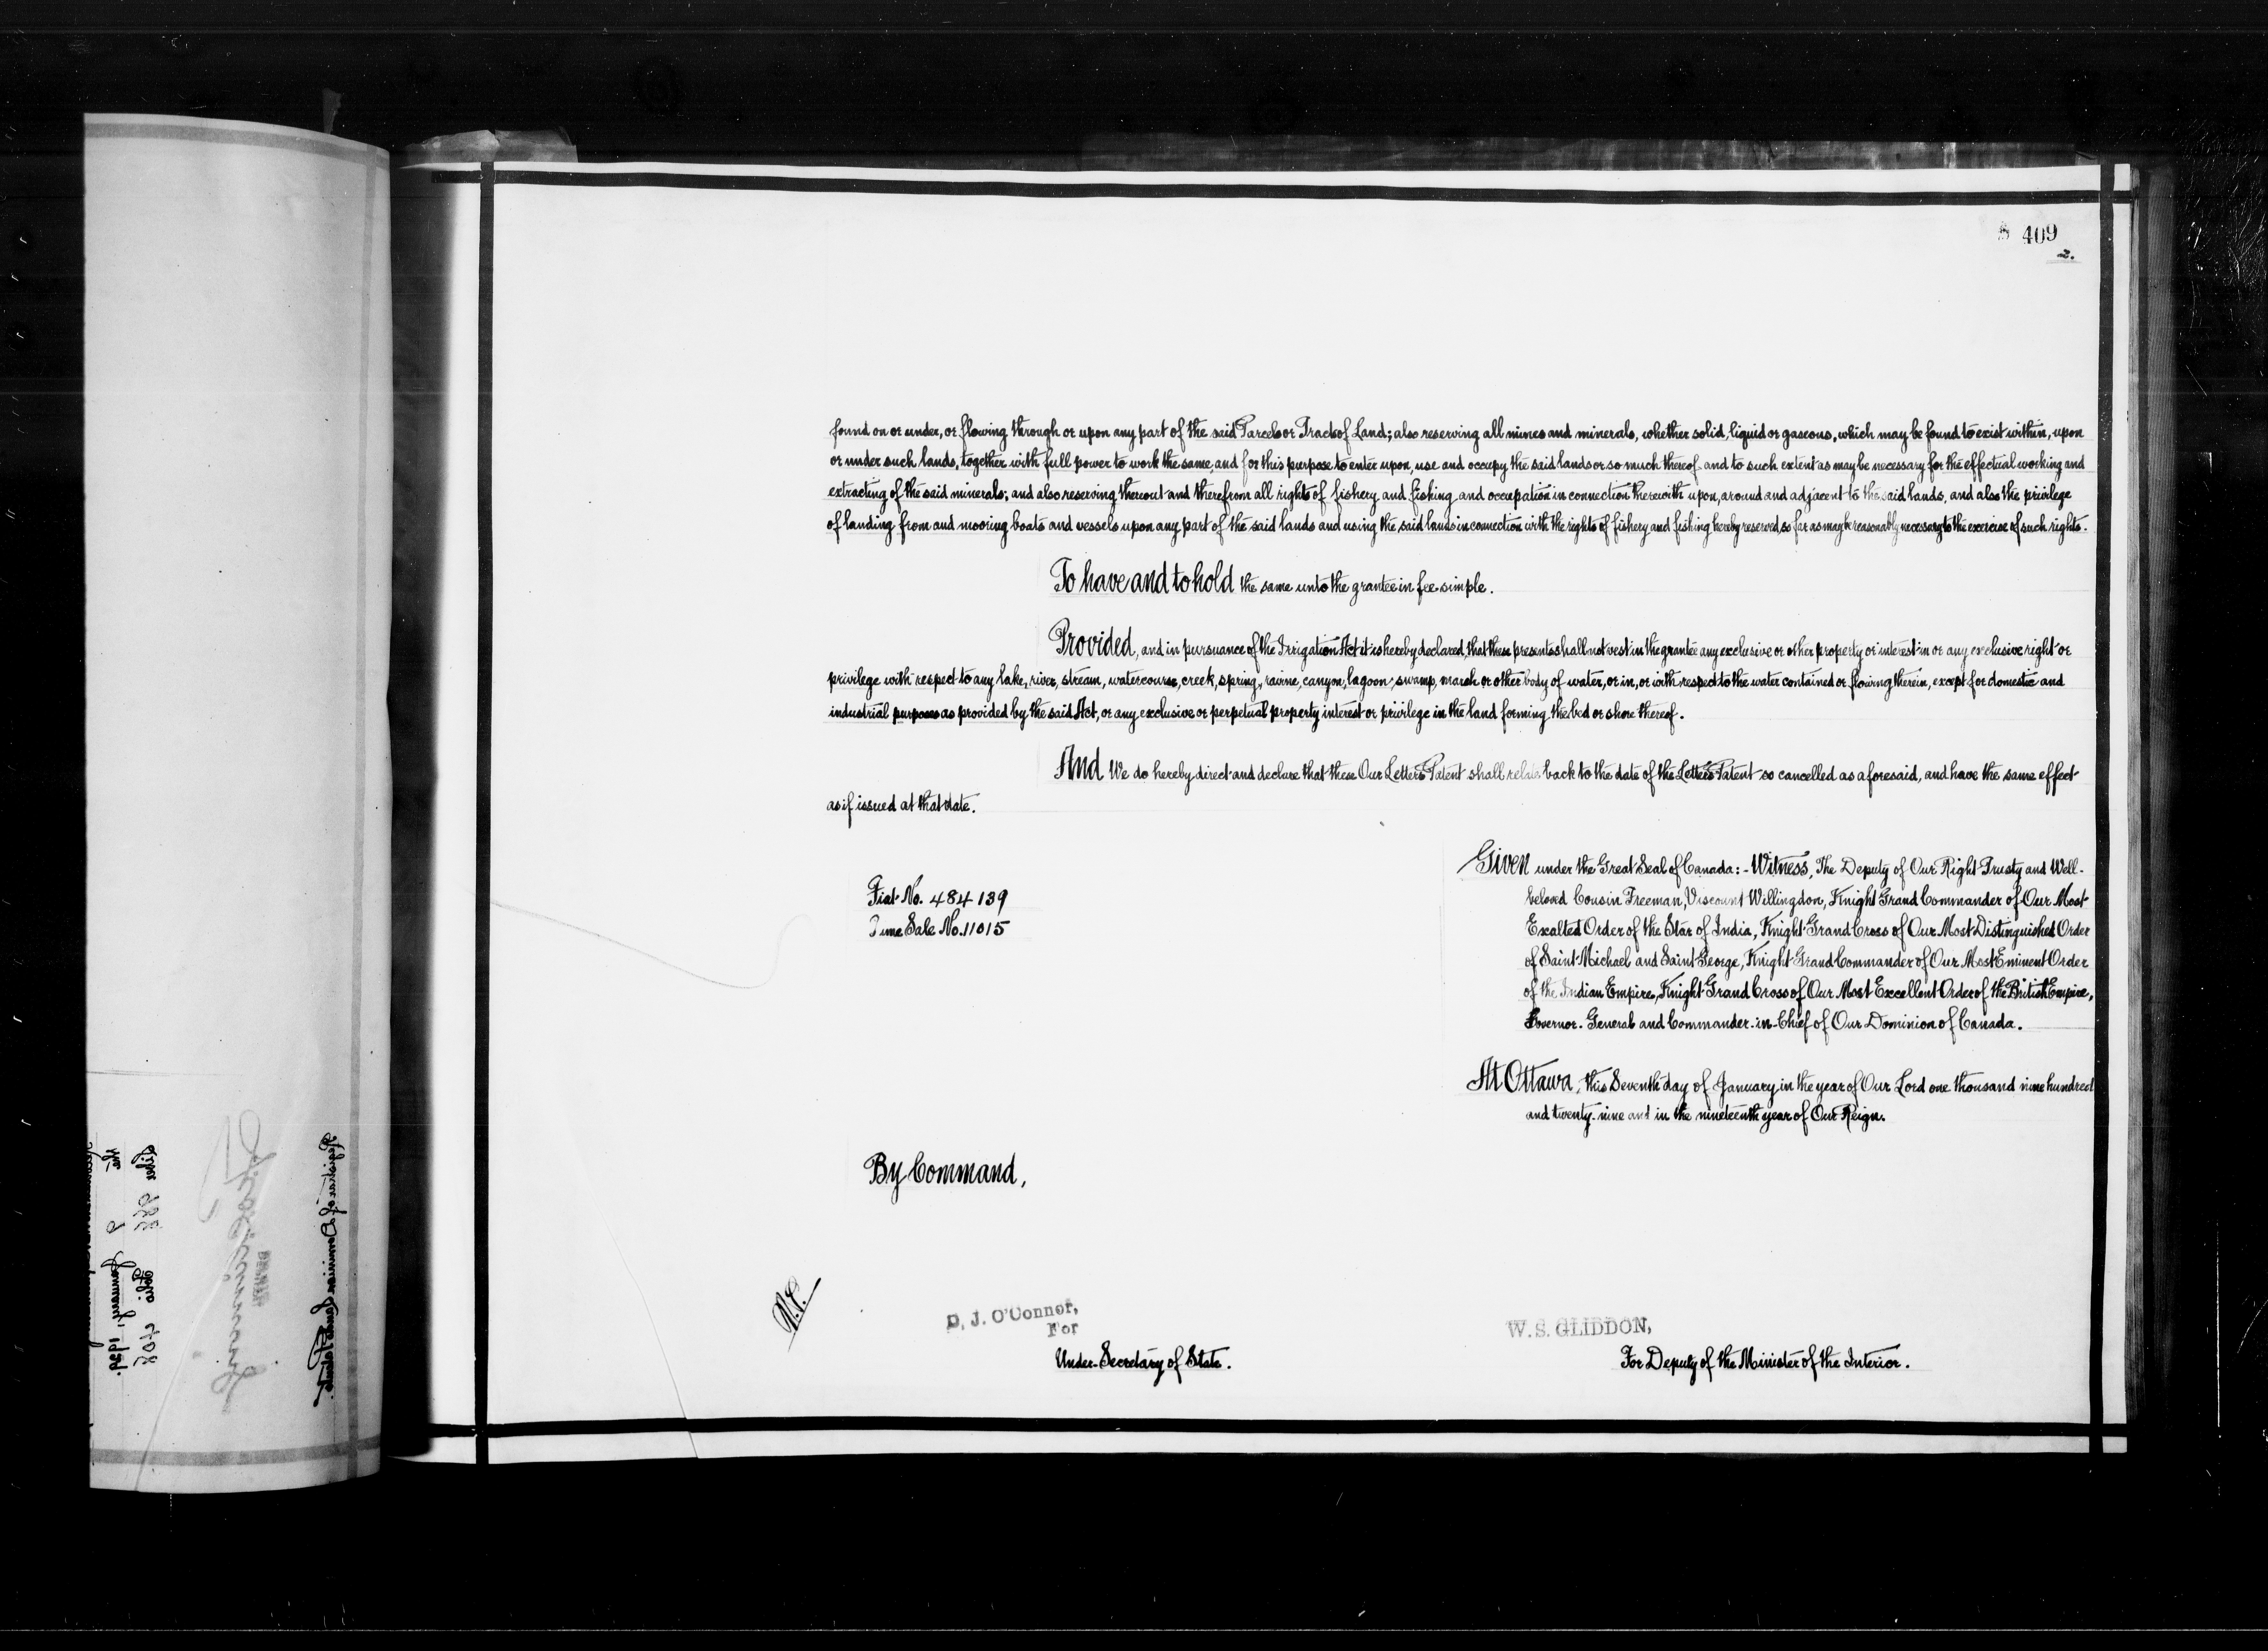 409
2.
found on or under, or flowing through or upon any part of the said Parcels or Tracts of Land; also reserving all mines and minerals, whether solid, liquid or gaseous, which may be found to exist within, upon
or under such lands, together with full power to work the same, and for this purpose to enter upon, use and occupy the said lands or so much thereof and to such extent as may be necessary for the effectual working and
extracting of the said minerals; and also reserving thereout and therefrom all rights of fishery and fishing and occupation in connection therewith upon, around and adjacent to the said lands, and also the privilege
of landing from and mooring boats and vessels upon any part of the said lands and using the said lands in connection with the rights of fishery and fishing hereby reserved so far as may be reasonably necessary to the exercise of such rights.
To have and to hold the same unto the grantee in fee simple.
Provided, and in pursuance of the Irrigation Act it is hereby declared, that these presents shall not vest in the grantee any exclusive or other property or interest in or any exclusive right or
privilege with respect to any lake, river, stream, watercourse, creek, spring, ravine, canyon, lagoon, swamp, marsh or other body of water, or in, or with respect to the water contained or flowing therein, except for domestic and
industrial purposes as provided by the said Act, or any exclusive or perpetual property interest or privilege in the land forming the bed or shore thereof.
And We do hereby direct and declare that these Our Letters Patent shall relate back to the date of the Letters Patent so cancelled as aforesaid, and have the same effect
as if issued at that date.
Given under the Great Seal of Canada:- Witness, The Deputy of Our Right Trusty and Well-
beloved Cousin Freeman, Viscount Willingdon, Knight Grand Commander of Our Most
Exalted Order of the Star of India, Knight Grand Cross of Our Most Distinguished Order
of Saint Michael and Saint George, Knight Grand Commander of Our Most Eminent Order
of the Indian Empire, Knight Grand Cross of Our Most Excellent Order of the British Empire,
Governor-General and Commander-in-Chief of Our Dominion of Canada.
Fiat No. 484139
Sale No. 11015
At Ottawa, this Seventh day of January in the year of Our Lord one thousand nine hundred
and twenty-nine and in the nineteenth year of Our Reign.
By Command,
D. J. O'Connor,
For
Under-Secretary of State.
W. S. GLIDDON,
For Deputy of the Minister of the Interior.
Registrar of Dominion Lands Patents.
Liber 988 Folio 408
the 9 January, 1929.